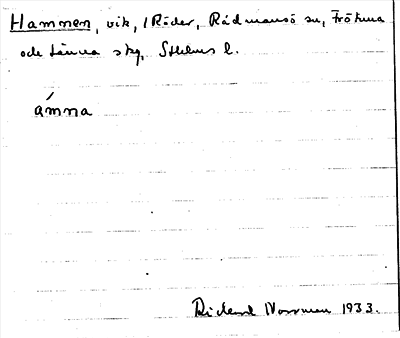 Hammen, vik, i Röder, Rådmansö sn, Frötuna
och Länna skg, Sthlms l.
ámna
Rickard Norrman 1933.